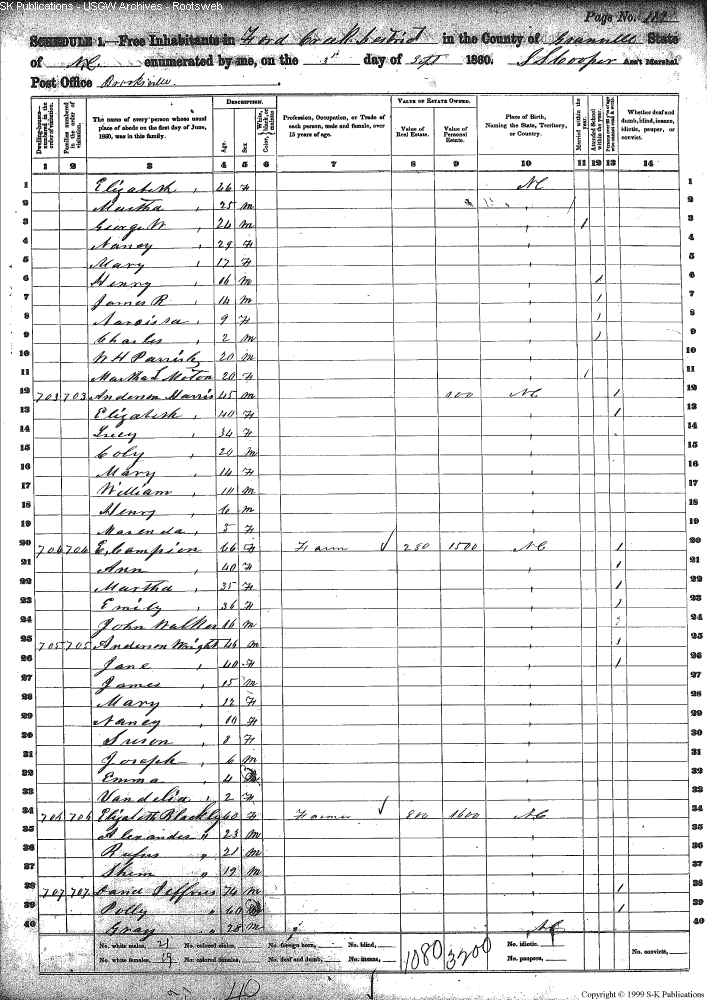 SK Publications - USGW Archives - Rootsweb
Page No.
SCHEDULE 1.—Free Inhabitants in Ford Creek District in the County of Granville State
of N.C. enumerated by me, on the day of Sept 1860. Ass't Marshal
Post Office
Dwelling-houses— numbered in the order of visitation.
Families numbered in the order of visitation.
The name of every person whose usual place of abode on the first day of June, 1860, was in this family.
DESCRIPTION.
Age.
Sex.
Color, White, black, or mulatto
Profession, Occupation, or Trade of each person, male and female, over 15 years of age.
VALUE OF ESTATE OWNED.
Value of Real Estate.
Value of Personal Estate.
Place of Birth, Naming the State, Territory, or Country.
Married within the year.
Attended School within the year.
Whether deaf and dumb, blind, insane, idiotic, pauper, or convict.
1 2 3 4 5 6 7 8 9 10 11 12 13 14
1 Elizabeth 46 F NC 1
2 Martha 25 M 2
3 George W 24 M 1 3
4 Nancy 29 F 4
5 Mary 17 F 5
6 Henry 16 M 1 6
7 James R 14 M 1 7
8 Narcissa 9 F 1 8
9 Charles 2 M 1 9
10 W H Parrish 20 M 10
11 Martha L Moton 20 F 1 11
12 703 703 Anderson Harris 45 M 100 NC 1 12
13 Elizabeth 40 F 1 13
14 Lucy 34 F 14
15 Coly 20 M 15
16 Mary 14 F 16
17 William 10 M 17
18 Henry 6 M 18
19 Marenda 3 F 19
20 704 704 E. Campion 66 F Farm 280 1500 NC 1 20
21 Ann 40 F 1 21
22 Martha 35 F 1 22
23 Emily 36 F 1 23
24 John Walker 16 M 24
25 705 705 Anderson Wright 46 M 1 25
26 Jane 40 F 1 26
27 James 15 M 27
28 Mary 12 F 28
29 Nancy 10 F 29
30 Suson 8 F 30
31 Joseph 6 M 31
32 Emma 4 32
33 Vandelia 2 F 33
34 706 706 Elizabeth Blackly 60 F Farmer 800 1600 NC 34
35 Alexander " 23 M 35
36 Rufus " 21 M 36
37 Shem " 19 M 37
38 707 707 David Jeffries 74 M 1 38
39 Polly " 60 1 39
40 Gray " 28 M NC 40
No. white males, 21 No. colored males, No. foreign born, No. blind, 1080 3200 No. idiotic,
No. white females, 19 No. colored females, No. deaf and dumb, No. insane, No. paupers, No. convicts,
40
Copyright © 1999 S-K Publications